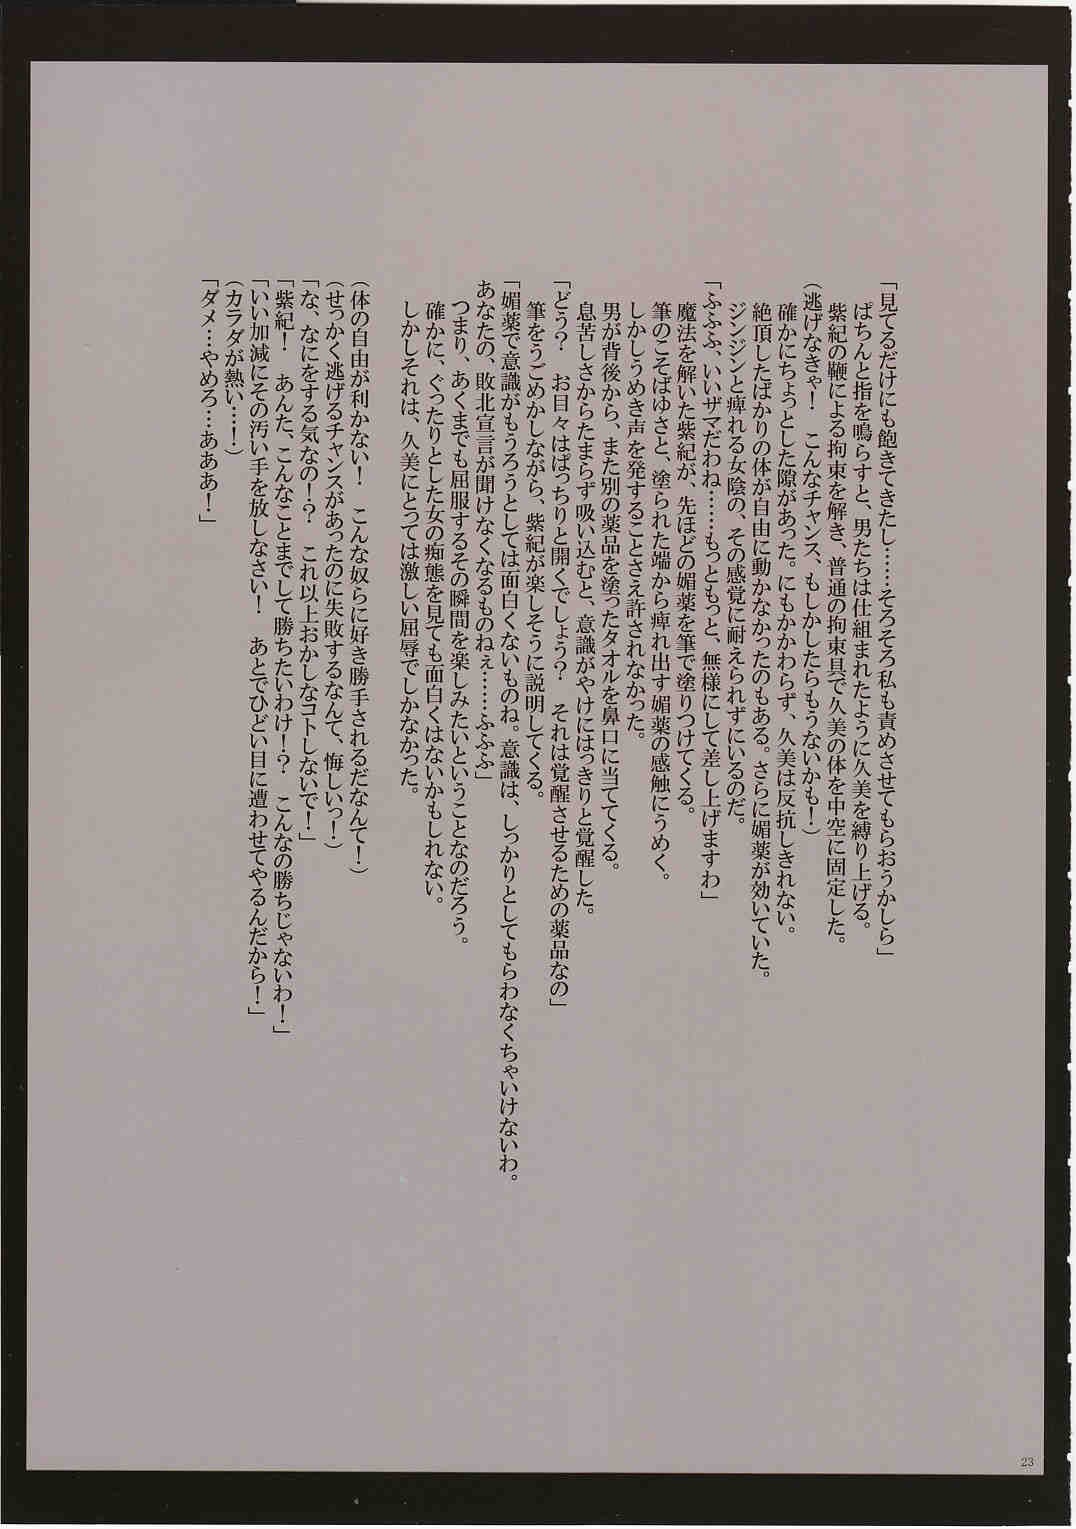 「見てるだけにも飽きてきたし……そろそろ私も責めさせてもらおうかしら」
ぱちんと指を鳴らすと、男たちは仕組まれたように久美を縛り上げる。
紫紀の鞭による拘束を解き、普通の拘束具で久美の体を中空に固定した。
(逃げなきゃ！　こんなチャンス、もしかしたらもうないかも！)
確かにちょっとした隙があった。にもかかわらず、久美は反抗しきれない。
絶頂したばかりの体が自由に動かなかったのもある。さらに媚薬が効いていた。
ジンジンと痺れる女陰の、その感覚に耐えられずにいるのだ。
「ふふふ、いいザマだわね……もっともっと、無様にして差し上げますわ」
魔法を解いた紫紀が、先ほどの媚薬を筆で塗りつけてくる。
筆のこそばゆさと、塗られた端から痺れ出す媚薬の感触にうめく。
しかしうめき声を発することさえ許されなかった。
男が背後から、また別の薬品を塗ったタオルを鼻口に当ててくる。
息苦しさからたまらず吸い込むと、意識がやけにはっきりと覚醒した。
「どう？　お目々はぱっちりと開くでしょう？　それは覚醒させるための薬品なの」
筆をうごめかしながら、紫紀が楽しそうに説明してくる。
「媚薬で意識がもうろうとしては面白くないものね。意識は、しっかりとしてもらわなくちゃいけないわ。
あなたの、敗北宣言が聞けなくなるものねぇ……ふふふ」
つまり、あくまでも屈服するその瞬間を楽しみたいということなのだろう。
確かに、ぐったりとした女の痴態を見ても面白くはないかもしれない。
しかしそれは、久美にとっては激しい屈辱でしかなかった。
(体の自由が利かない！　こんな奴らに好き勝手されるだなんて！)
(せっかく逃げるチャンスがあったのに失敗するなんて、悔しいっ！)
「な、なにをする気なの！？　これ以上おかしなコトしないで！」
「紫紀！　あんた、こんなことまでして勝ちたいわけ！？　こんなの勝ちじゃないわ！」
「いい加減にその汚い手を放しなさい！　あとでひどい目に遭わせてやるんだから！」
(カラダが熱い…！)
「ダメ…やめろ…あああ！」
23